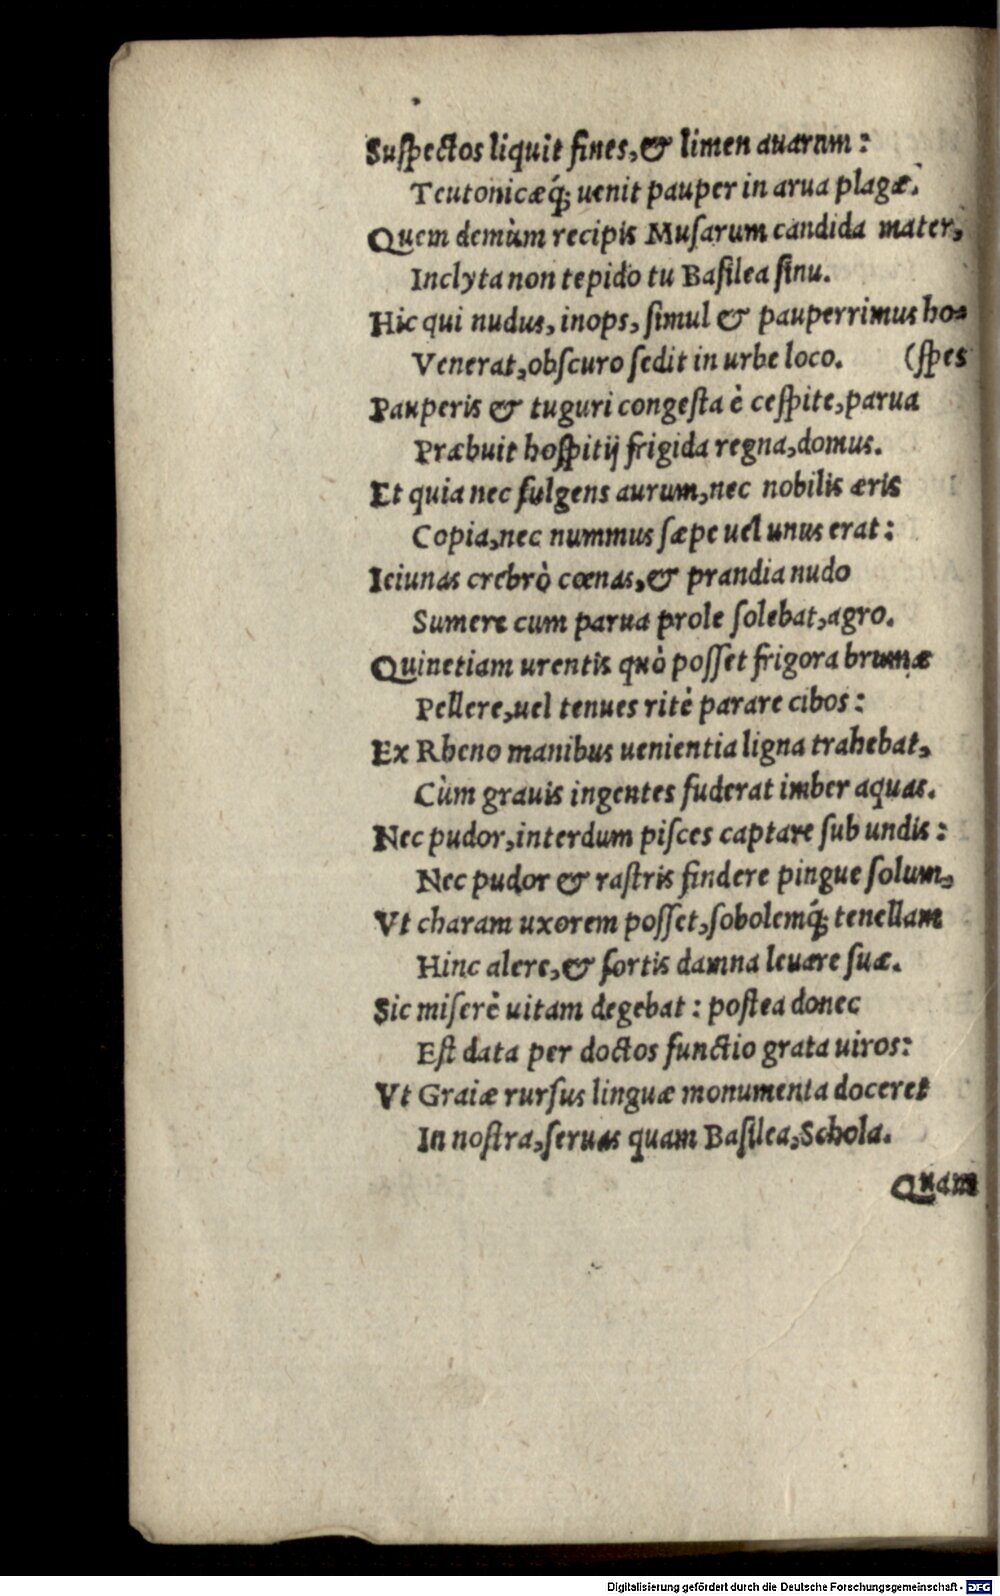 Suſpectos liquit fines, & limen auarum:
Teutonicæq́; uenit pauper in arua plagæ.
Quem demùm recipis Muſarum candida mater,
Inclyta non tepido tu Baſilea ſinu.
Hic qui nudus, inops, ſimul & pauperrimus ho=
Venerat, obſcuro ſedit in urbe loco. (ſpes
Pauperis & tuguri congeſta è ceſpite, parua
Præbuit hoſpitij frigida regna, domus.
Et quia nec fulgens aurum, nec nobilis æris
Copia, nec nummus ſæpe uel unus erat:
Ieiunas crebrò cœnas, & prandia nudo
Sumere cum parua prole ſolebat, agro.
Quinetiam urentis quò poſſet frigora brumæ
Pellere, uel tenues ritè parare cibos:
Ex Rheno manibus uenientia ligna trahebat,
Cùm grauis ingentes fuderat imber aquas.
Nec pudor, interdum piſces captare ſub undis:
Nec pudor & raſtris findere pingue ſolum,
Vt charam uxorem poſſet, ſobolemq́; tenellam
Hinc alere, & ſortis damna leuare ſuæ.
Sic miſerè uitam degebat: poſtea donec
Eſt data per doctos functio grata uiros:
Vt Graiæ rurſus linguæ monumenta doceret
In noſtra, ſeruas quam Baſilea, Schola.
Quam
Digitalisierung gefördert durch die Deutsche Forschungsgemeinschaft - DFG